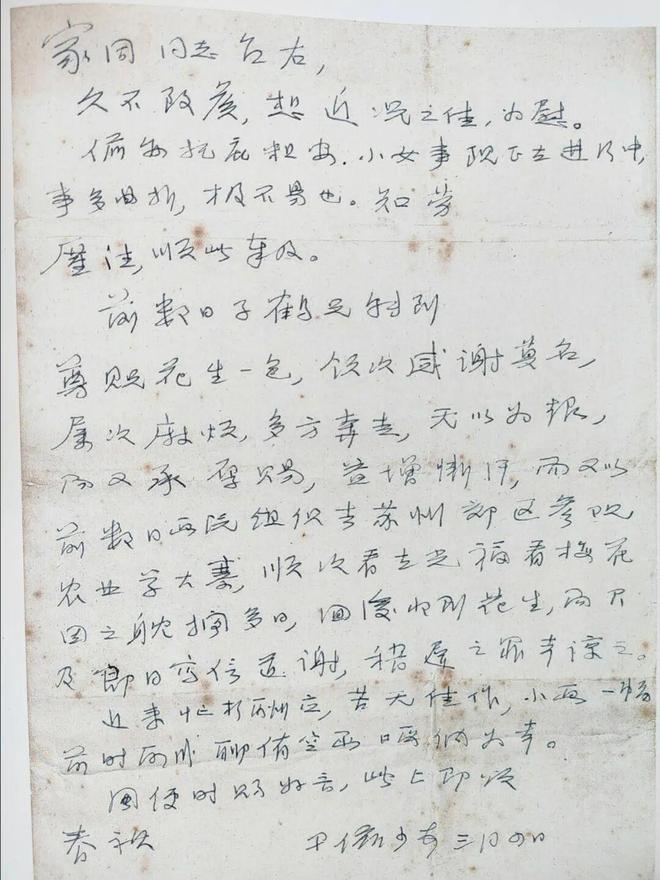 家同同志台右，
久不致候，想近况之佳，为慰。
俪安托庇粗安。小女事现正在进行中，
事多曲折，极不易也。知劳
廑注，顺此奉及。
前数日子鹤兄转到
尊贶花生一包，领次感谢莫名，
屡次麻烦，多方奔走，无以为报，
而又承厚赐，益增惭汗，而又以
前数日画院组织去苏州郊区参观
农业学大寨，顺次看去光福看梅花
因之耽搁多日，回后收到花生，而不
及即日写信道谢，稽迟之罪幸谅之。
近来忙于酬应，苦无佳作，小画一帧
前时所作聊备空函
因便时赐好音，此上即颂
春祺 三月四日